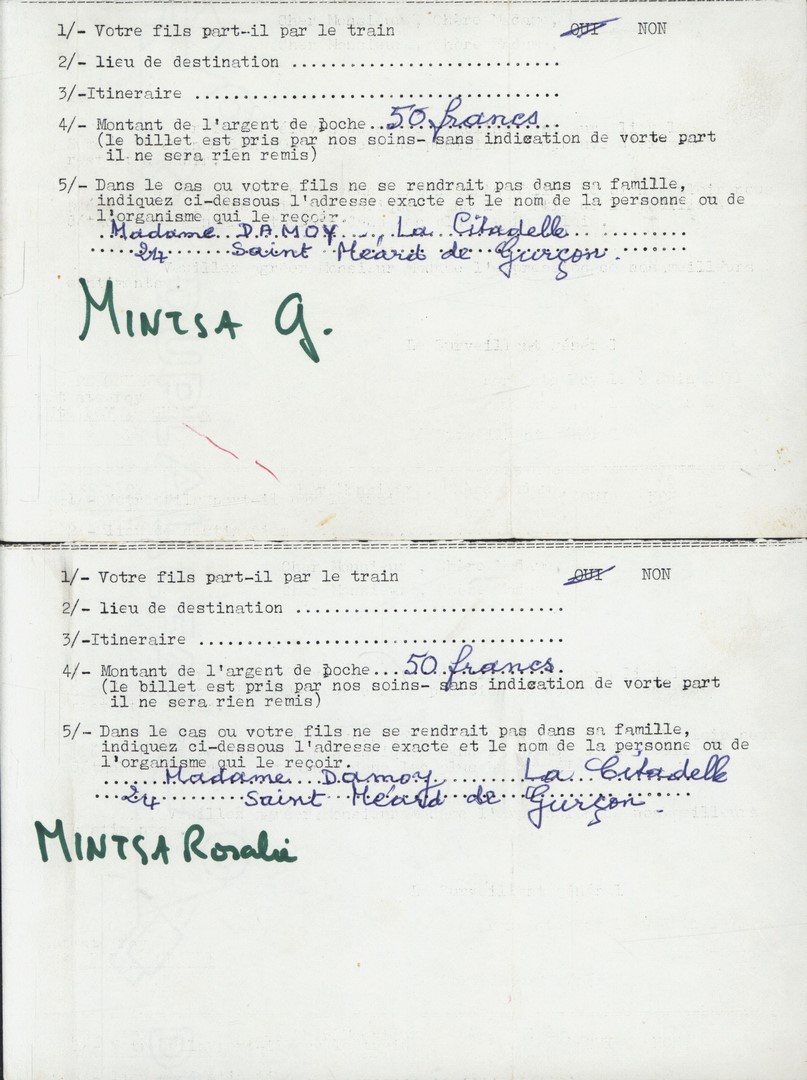 1/- Votre fils part-il par le train OUI NON
2/- lieu de destination ............................
3/-Itineraire ......................................
4/- Montant de l'argent de poche...50 francs...
(le billet est pris par nos soins- sans indication de vorte part
il ne sera rien remis)
5/- Dans le cas ou votre fils ne se rendrait pas dans sa famille,
indiquez ci-dessous l'adresse exacte et le nom de la personne ou de
l'organisme qui le reçoir.
Madame DAMOY La Citadelle
24 Saint Méard de Gurçon.
MINTSA G.
1/- Votre fils part-il par le train OUI NON
2/- lieu de destination ............................
3/-Itineraire ......................................
4/- Montant de l'argent de poche...50 francs.
(le billet est pris par nos soins- sans indication de vorte part
il ne sera rien remis)
5/- Dans le cas ou votre fils ne se rendrait pas dans sa famille,
indiquez ci-dessous l'adresse exacte et le nom de la personne ou de
l'organisme qui le reçoir.
Madame Damoy La Citadelle
24 Saint Méard de Gurçon.
MINTSA Rosalie